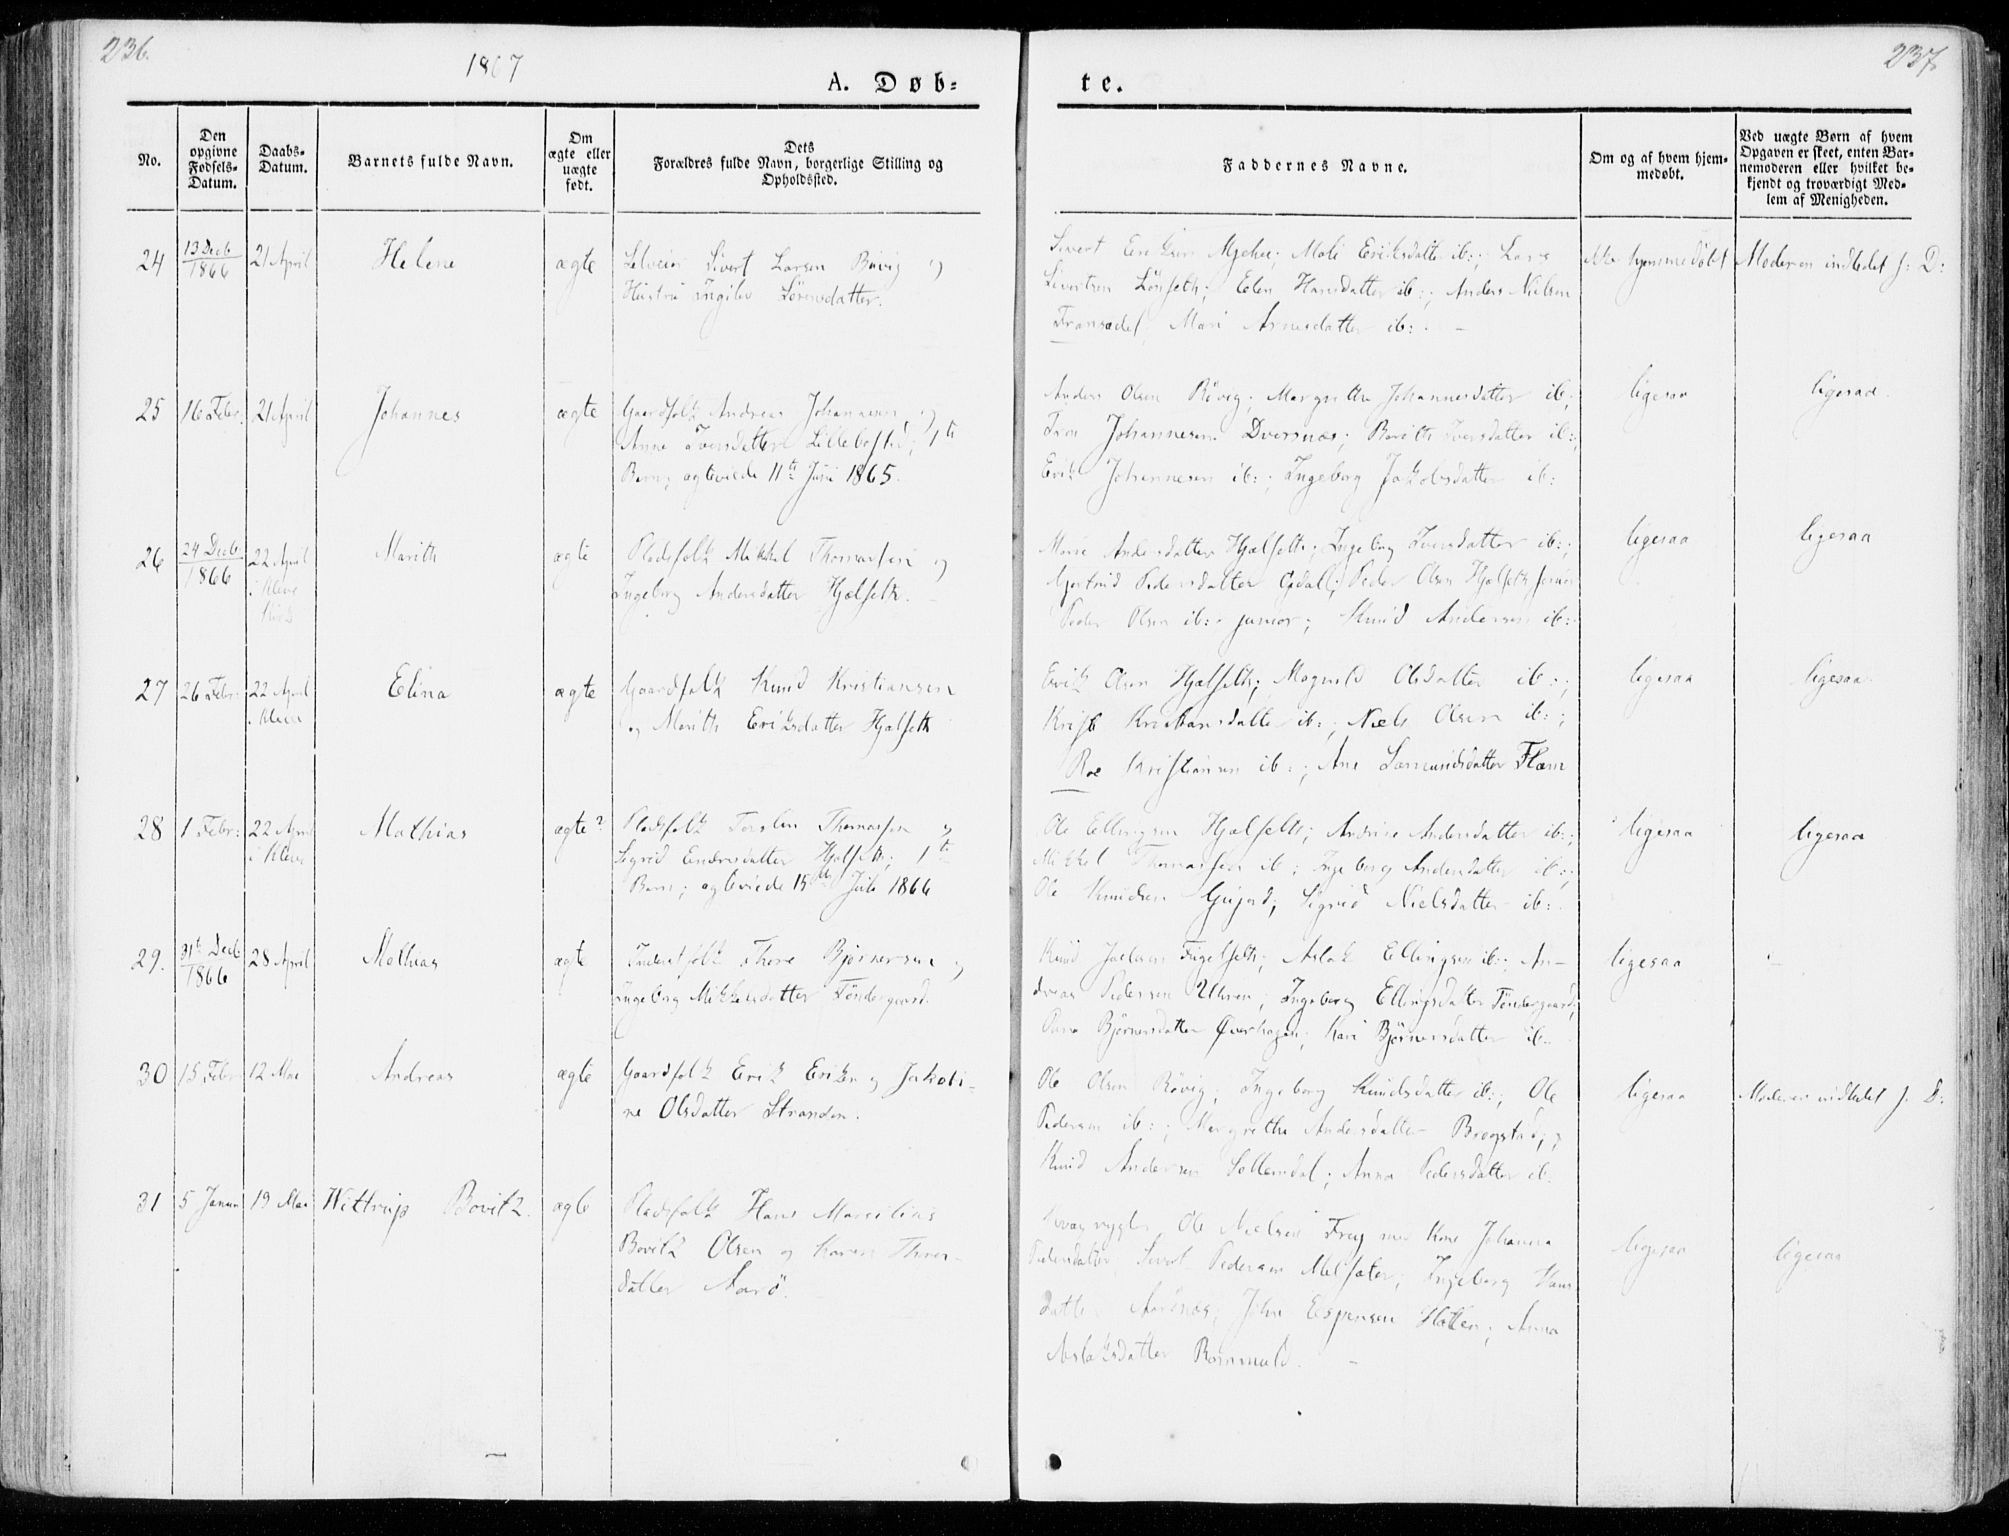 236.
1867
A. Døb-
te.
237.
No.
Den opgivne Fødsels-Datum.
Daabs-Datum.
Barnets fulde Navn.
Om ægte eller uægte født.
Dets Forældres fulde Navn, borgerlige Stilling og Opholdssted.
Faddernes Navne.
Om og af hvem hjemmedøbt.
Ved uægte Børn af hvem Opgaven er skeet, enten Barnemoderen eller hvilket bekjendt og troværdigt Medlem af Menigheden.
24 13 Decb 1866 21 April Helene ægte
Sivert Larsen Røvig og
Hustru Ingeber Sørensdatter.
Sivert Eriksen Mali Eriksdatter ib:; Lars
Sivertsen Lönseth; Elen Hansdatter ib:; Anders Nielsen
Mari Arnesdatter ib:
ikke hjemmedøbt
Moderen indledet s: D:
25 16 Febr. 21 April Johannes ægte
Gaardfolk Andreas Johannesen og
Anne Iversdatter Lillebostad; 1te
Barn; ægteviede 11te Juni 1865.
Anders Olsen Røvig; Margrethe Johannesdatter ib;
Johannesen Dversnæs; Berith Iversdatter ib:;
Erik Johannesen ib:; Ingeborg Jakobsdatter ib:
ligesaa
ligesaa
26 24 Decb 1866 22 April i Kleve Kirk Marith ægte
Pladsfolk Mikkel Thomassen og
Ingeborg Andersdatter Hjelseth.
Marie Andersdatter Hjelseth; Ingeborg Iversdatter ib:;
Gjertrud Pedersdatter Peder Olsen Hjelseth senior
Peder Olsen ib: junior; Knud Andersen ib:
ligesaa
ligesaa
27 26 Febr. 22 April i Kleve Elina ægte
Gaardfolk Knud Kristiansen
og Marith Eriksdatter Hjelseth
Erik Olsen Hjelseth; Magnild Olsdatter ib:;
Kristiansdatter ib:; Niels Olsen ib:;
Roe Kristiansen ib:; Ane Sæmundsdatter Flem
ligesaa
ligesaa
28 1 Febr: 22 April i Kleve Mathias ægte?
Pladsfolk Torsten Thomassen og
Sigrid Endresdatter Hjelseth; 1te
Barn; ægteviede 15de Juli 1866
Ole Ellingsen Hjelseth; Andrine Andersdatter ib:;
Mikkel Thomassen ib; Ingeborg Andersdatter ib:;
Ole Knudsen Sigrid Nielsdatter ib:
ligesaa
ligesaa
29. 31te Decb 1866 28 April Mathias ægte
Thore Bjørnersen og
Ingeborg Mikkelsdatter Töndergaard.
Knud Fugelseth; Aslak Ellingsen ib:; An-
dreas Pedersen Uhren; Ingeborg Ellingsdatter Töndergaard;
Bjørnersdatter Øverhagen; Kari Bjørnersdatter ib.
ligesaa
30 15 Febr 12 Mai Andreas ægte
Gaardfolk Erik Eriksen og Jakobi-
ne Olsdatter Stranden.
Ole Olsen Røvig; Ingeborg Knudsdatter ib:; Ole
Pedersen ib:; Margrethe Andersdatter Bergstad;
Knud Andersen Sollemdal; Anna Pedersdatter ib.
ligesaa
Moderen indledet s: D:
31 5 Janua 19 Mai Wittrup Bovitz. ægte
Pladsfolk Hans Marcilius
Bovitz Olsen og Karen Thores-
datter Aarö.
Ole Nielsen Frey med Kone Johanna
Pedersdatter, Sivert Pedersen Melsæter; Ingeborg Hans
datter Aarönæs; John Espensen Hatlen; Anna
Aslaksdatter
ligesaa
ligesaa